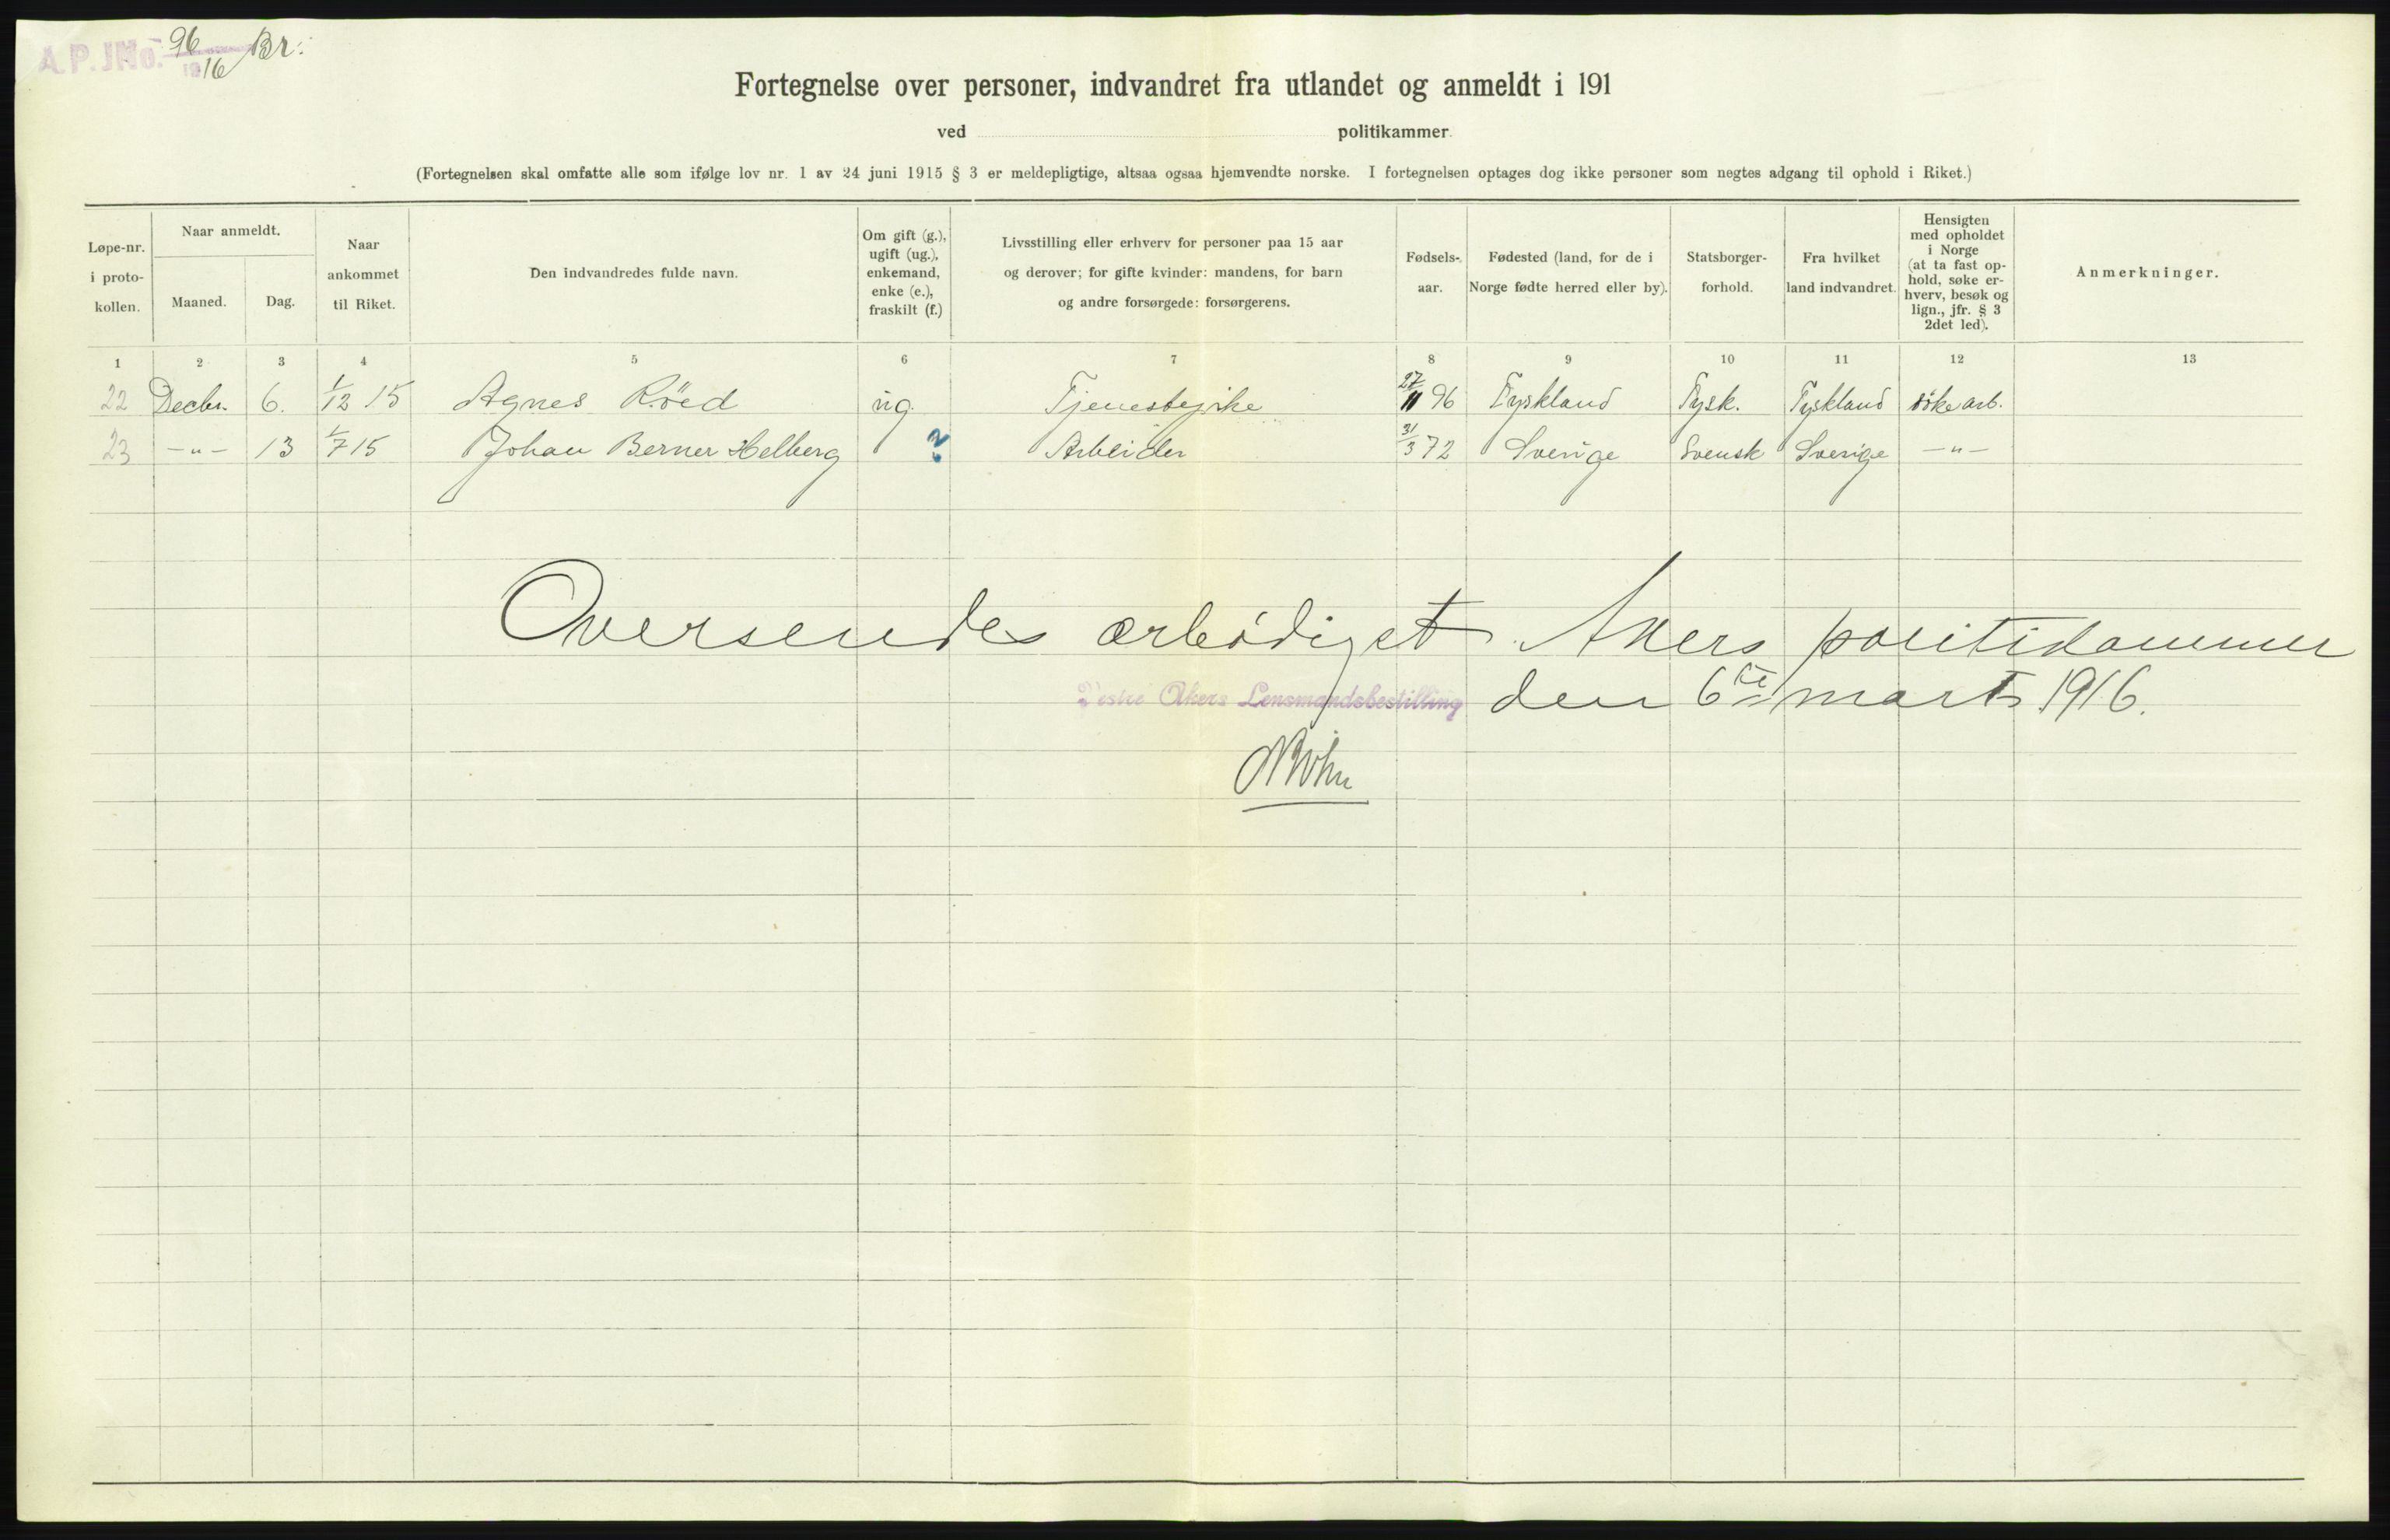 A.P. JNo. 96/1916 Br:
Fortegnelse over personer, indvandret fra utlandet og anmeldt i 191
ved politikammer.
(Fortegnelsen skal omfatte alle som ifølge lov nr. 1 av 24 juni 1915 § 3 er meldepligtige, altsaa ogsaa hjemvendte norske. I fortegnelsen optages dog ikke personer som negtes adgang til ophold i Riket.)
Løpe-nr. i proto-kollen.
Naar anmeldt.
Maaned.
Dag.
Naar ankommet til Riket.
Den indvandredes fulde navn.
Om gift (g.), ugift (ug.), enkemand, enke (e.), fraskilt (f.)
Livsstilling eller erhverv for personer paa 15 aar og derover; for gifte kvinder: mandens, for barn og andre forsørgede: forsørgerens.
Fødsels-aar.
Fødested (land, for de i Norge fødte herred eller by).
Statsborger-forhold.
Fra hvilket land indvandret.
Hensigten med opholdet i Norge (at ta fast op-hold, søke er-hverv, besøk og lign., jfr. § 3 2det led).
Anmerkninger.
1 2 3 4 5 6 7 8 9 10 11 12 13
22 Decbr. 6. 1/12 15 Agnes Röed ug. Tjenestepike 27/11 96 Tyskland Tysk. Tyskland söke arb.
23 -"- 13 1/7 15 Johan Berner Helberg ? Arbeider 31/3 72 Sverige Svensk Sverige -"-
Oversendes ærbödigst Akers politikammer
Vestre Akers Lensmandsbestilling den 6te marts 1916.